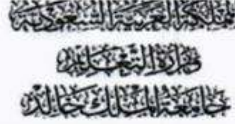 المملكة العربية السعودية
وزارة التعليم
جامعة الملك خالد